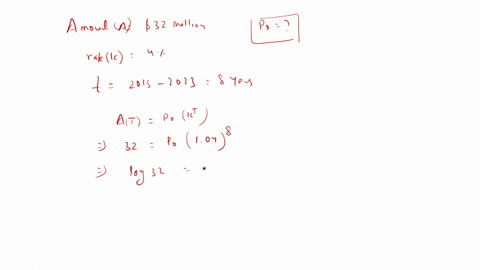 Amount (A) $ 32 million
P₀ = ?
rate (k) = 4 %
t = 2015 - 2023 = 8 years
A(T) = P₀ (k^T)
⇒ 32 = P₀ (1.04)^8
⇒ log 32 =